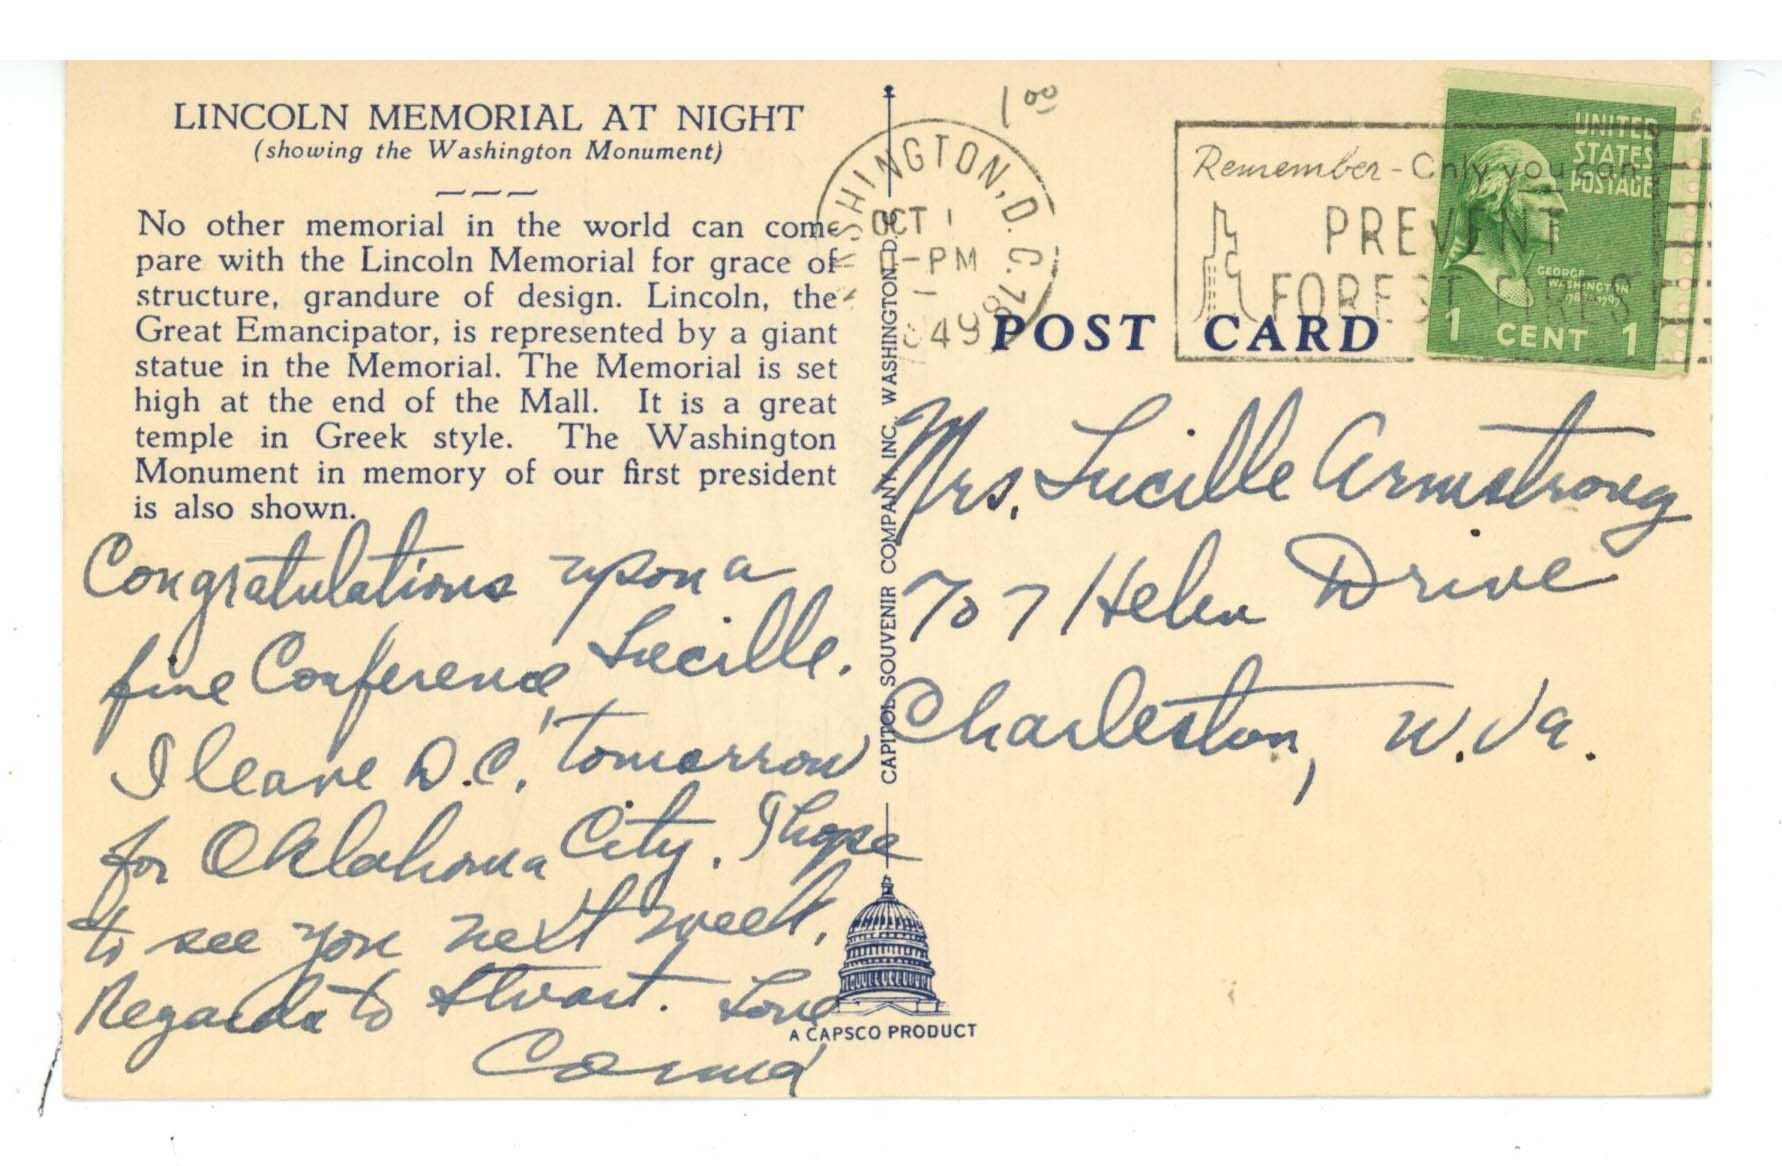 LINCOLN MEMORIAL AT NIGHT
(showing the Washington Monument)
No other memorial in the world can com-
pare with the Lincoln Memorial for grace of
structure, grandure of design. Lincoln, the
Great Emancipator, is represented by a giant
statue in the Memorial. The Memorial is set
high at the end of the Mall. It is a great
temple in Greek style. The Washington
Monument in memory of our first president
is also shown.
Congratulations upon a
fine Conference, Lucille.
I leave D.C. tomorrow
for Oklahoma City. I hope
to see you next week.
Regards to Stuart. Love
CAPITOL SOUVENIR COMPANY, INC. WASHINGTON, D.C.
A CAPSCO PRODUCT
1 00
WASHINGTON, D.C.
OCT 1
-PM
1949
Remember - Only you can
PREVENT
FOREST FIRES
UNITED
STATES
POSTAGE
GEORGE
WASHINGTON
1 CENT 1
POST CARD
Mrs. Lucille Armstrong
707 Helen Drive
Charleston, W.Va.